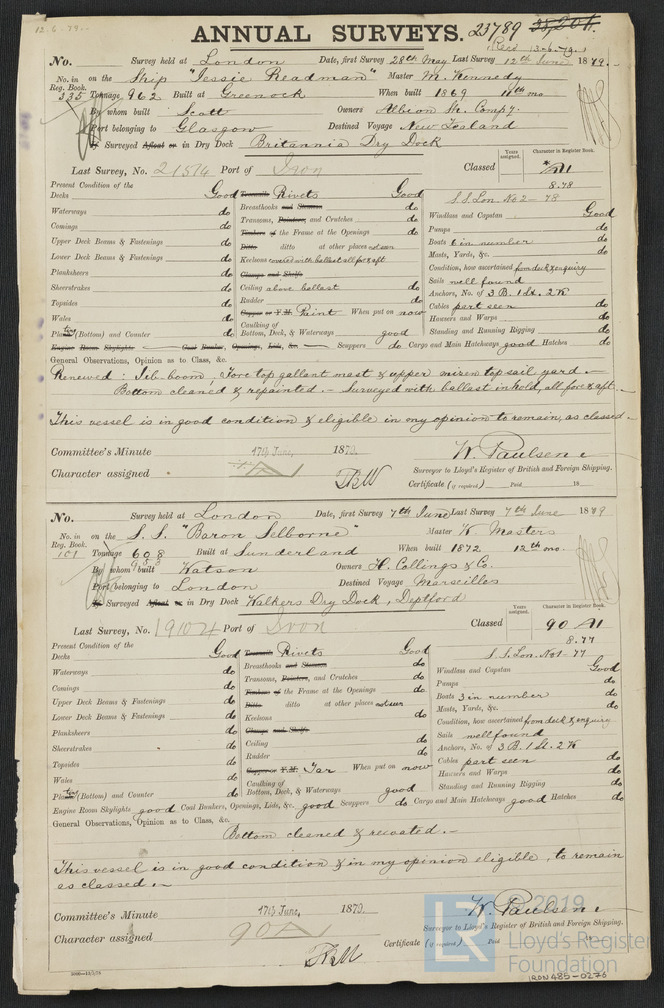 12-6-79
ANNUAL SURVEYS. 23789 38,204.
(Recd 13-6-79.)
No. Survey held at London Date, first Survey 28th May Last Survey 12th June 1879.
No. in Reg. Book. on the Ship "Jessie Readman" Master M. Kennedy
335 Tonnage 962 Built at Greenock When built 1869 11th mo
By whom built Scott Owners Albion Sh. Compy.
Port belonging to Glasgow Destined Voyage New Zealand
If Surveyed Afloat or in Dry Dock Britannia Dry Dock
Last Survey, No. 21514 Port of Iron Classed Years assigned. Character in Register Book. *A1
8.78
S.S. Lon. No 2 - 78
Present Condition of the
Decks Good Treenails Rivets Good
Waterways do Breasthooks and Stemson do Windlass and Capstan Good
Comings do Transoms, Pointers, and Crutches do Pumps do
Upper Deck Beams & Fastenings do Timbers of the Frame at the Openings do Boats 6 in number do
Ditto ditto at other places not seen Masts, Yards, &c. do
Lower Deck Beams & Fastenings do Keelsons covered with ballast all fore & aft Condition, how ascertained from deck & enquiry
Planksheers do Clamps and Shelfs Sails well found
Sheerstrakes do Ceiling above ballast do Anchors, No. of 3 B. 1 St. 2 K
Topsides do Rudder do Cables part seen do
Wales do Copper or Y.M. Paint When put on now Hawsers and Warps do
Plating (Bottom) and Counter do Caulking of Bottom, Deck, & Waterways good Standing and Running Rigging do
Engine Room Skylights Coal Bunker, Openings, Lids, &c. Scuppers do Cargo and Main Hatchways good Hatches do
General Observations, Opinion as to Class, &c.
Renewed: Jib-boom, Fore top gallant mast & upper mizen topsail yard.
Bottom cleaned & repainted. - Surveyed with ballast in hold, all fore & aft.
This vessel is in good condition & eligible in my opinion to remain, as classed.
Committee's Minute 17th June, 1879. W. Paulsen
Character assigned Surveyor to Lloyd's Register of British and Foreign Shipping.
Certificate (if required) Paid 18
No. Survey held at London Date, first Survey 7th June Last Survey 7th June 1879
No. in Reg. Book. on the S.S. "Baron Selborne" Master W. Masters
101 Tonnage 608 Built at Sunderland When built 1872 12th mo.
958
By whom built Watson Owners H. Collings & Co.
Port belonging to London Destined Voyage Marseilles
If Surveyed Afloat or in Dry Dock Walkers Dry Dock, Deptford
Last Survey, No. 19104 Port of Iron Classed Years assigned. Character in Register Book. 90 A1
8.77
S.S. Lon. No 1 - 77
Present Condition of the
Decks Good Treenails Rivets Good
Waterways do Breasthooks and Stemson do Windlass and Capstan Good
Comings do Transoms, Pointers, and Crutches do Pumps do
Upper Deck Beams & Fastenings do Timbers of the Frame at the Openings do Boats 3 in number do
Lower Deck Beams & Fastenings do Ditto ditto at other places not seen Masts, Yards, &c. do
Planksheers do Keelsons do Condition, how ascertained from deck & enquiry
Sheerstrakes do Clamps and Shelfs Sails well found
Topsides do Ceiling do Anchors, No. of 3 B. 1 St. 2 K
Rudder do Cables part seen do
Wales do Copper or Y.M. Tar When put on now Hawsers and Warps do
Plating (Bottom) and Counter do Caulking of Bottom, Deck, & Waterways good Standing and Running Rigging do
Engine Room Skylights good Coal Bunkers, Openings, Lids, &c. good Scuppers do Cargo and Main Hatchways good Hatches do
General Observations, Opinion as to Class, &c.
Bottom cleaned & recoated.
This vessel is in good condition & in my opinion eligible, to remain
as classed.
Committee's Minute 17th June, 1879. W. Paulsen
Character assigned 90A Surveyor to Lloyd's Register of British and Foreign Shipping.
Certificate (if required) Paid 18
© 2019
LR Lloyd's Register
Foundation
IRON485-0270